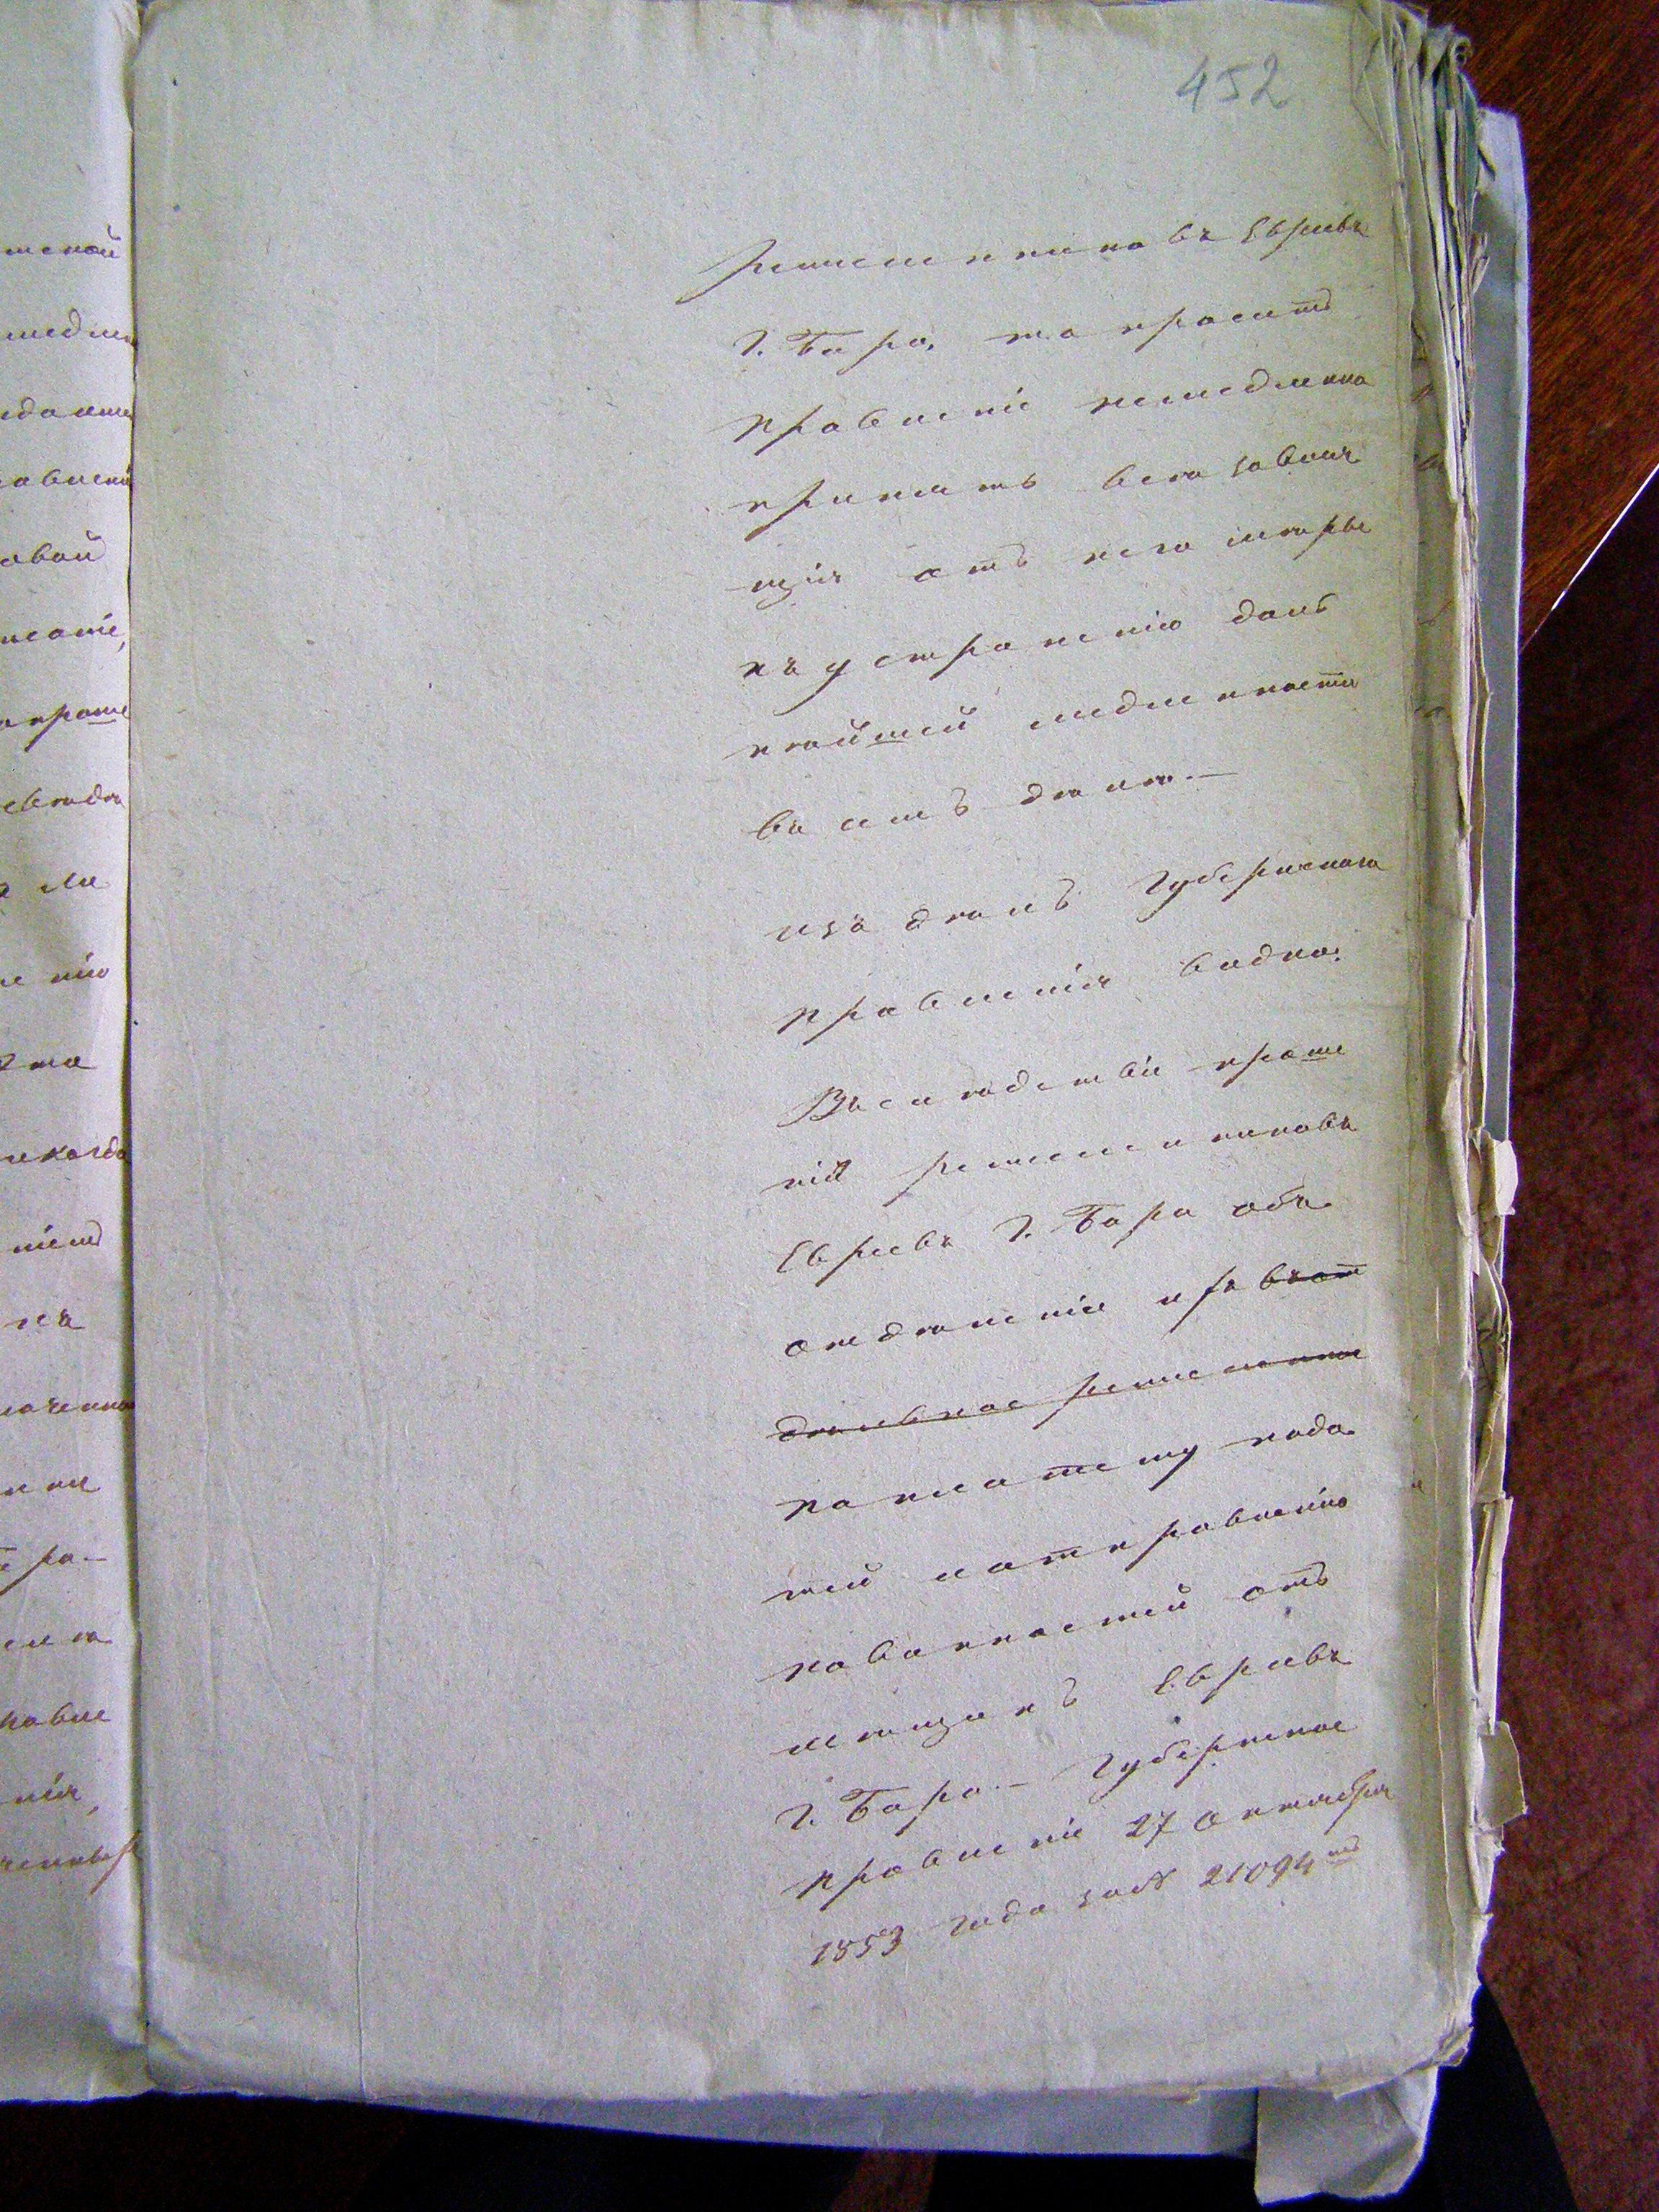 452
ремесленниковъ Евреевъ
г. Бара, то проситъ
правленіе немедленно
принять всѣ зависѧ
щія отъ него мѣры
къ устраненію даль
нѣйшей медленности
въ семъ дѣлѣ.—
изъ дѣлъ Губернскаго
правленія видно:
Въслѣдствіе проше
нія ремесленниковъ
Евреевъ г. Бара объ
отдѣленіи ихъ въ от
дѣльное ремесленное
по платежу пода
тей и отправленію
повинностей отъ
мѣщанъ Евреевъ
г. Бара.— Губернское
правленіе 27 Октября
1853 года за № 21094<sup>мъ</sup>
мской
медлен
авленія
овой
проше
никогда
ніемъ
нъ
ра—
нія,